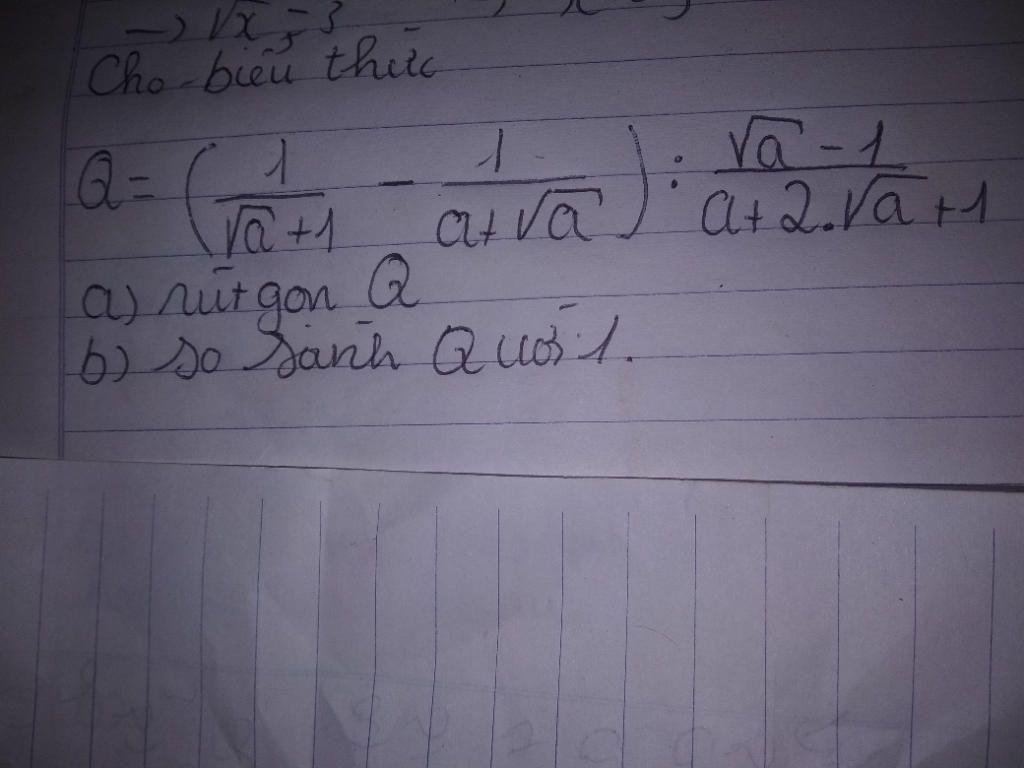 → √x = 3
Cho biểu thức
Q = (1/(√a + 1) - 1/(a + √a)) : (√a - 1)/(a + 2.√a + 1)
a) rút gọn Q
b) so sánh Q với 1.